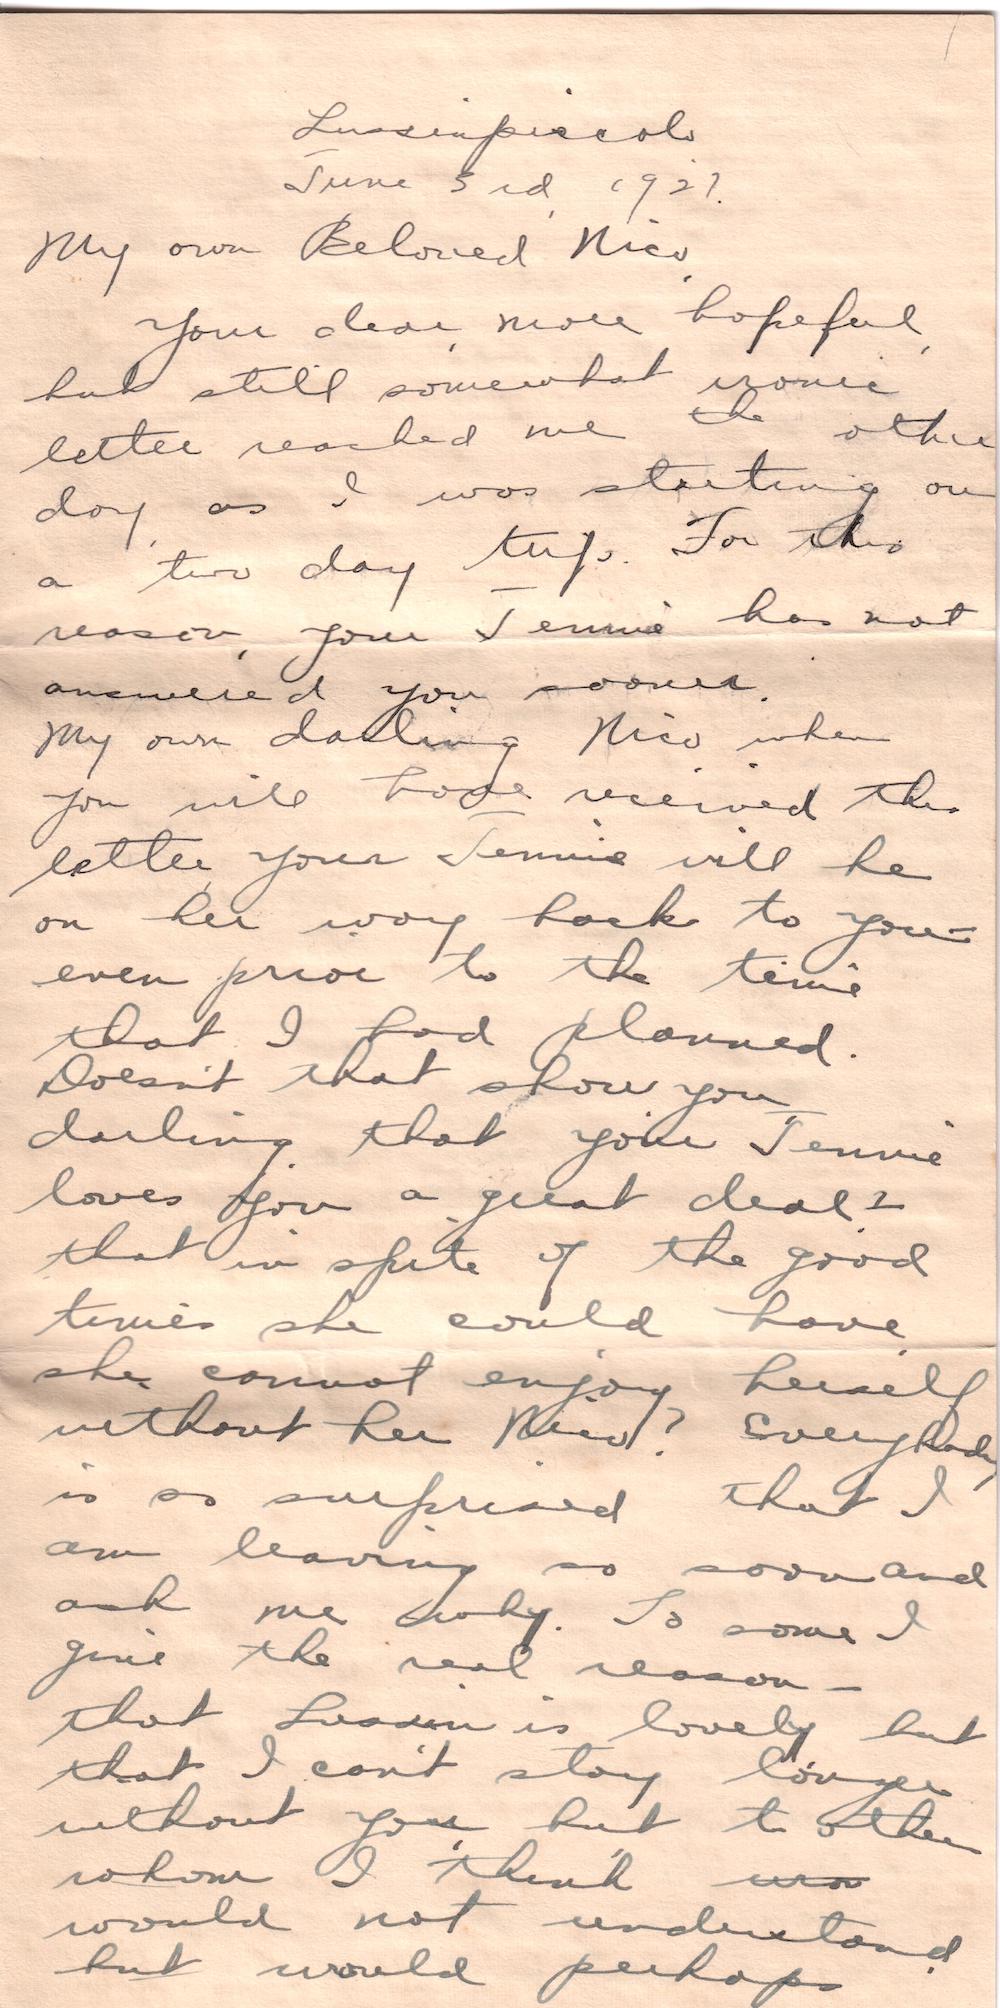 Lussinpiccolo
June 3rd, 1927.
My own Beloved Nico,
Your dear, more hopeful,
but still somewhat ironic
letter reached me the other
day, as I was starting on
a two day trip. For this
reason, your Jennie has not
answered you sooner.
My own darling Nico when
you will have received this
letter, your Jennie will be
on her way back to you –
even prior to the time
that I had planned.
Doesn't that show you
darling that your Jennie
loves you a great deal –
that in spite of the good
times she could have
she cannot enjoy herself
without her Nico? Everybody
is so surprised that I
am leaving so soon and
ask me why. To some I
give the real reason –
that Lussin is lovely but
that I can't stay longer
without you, but to others
whom I think
would not understand
but would perhaps